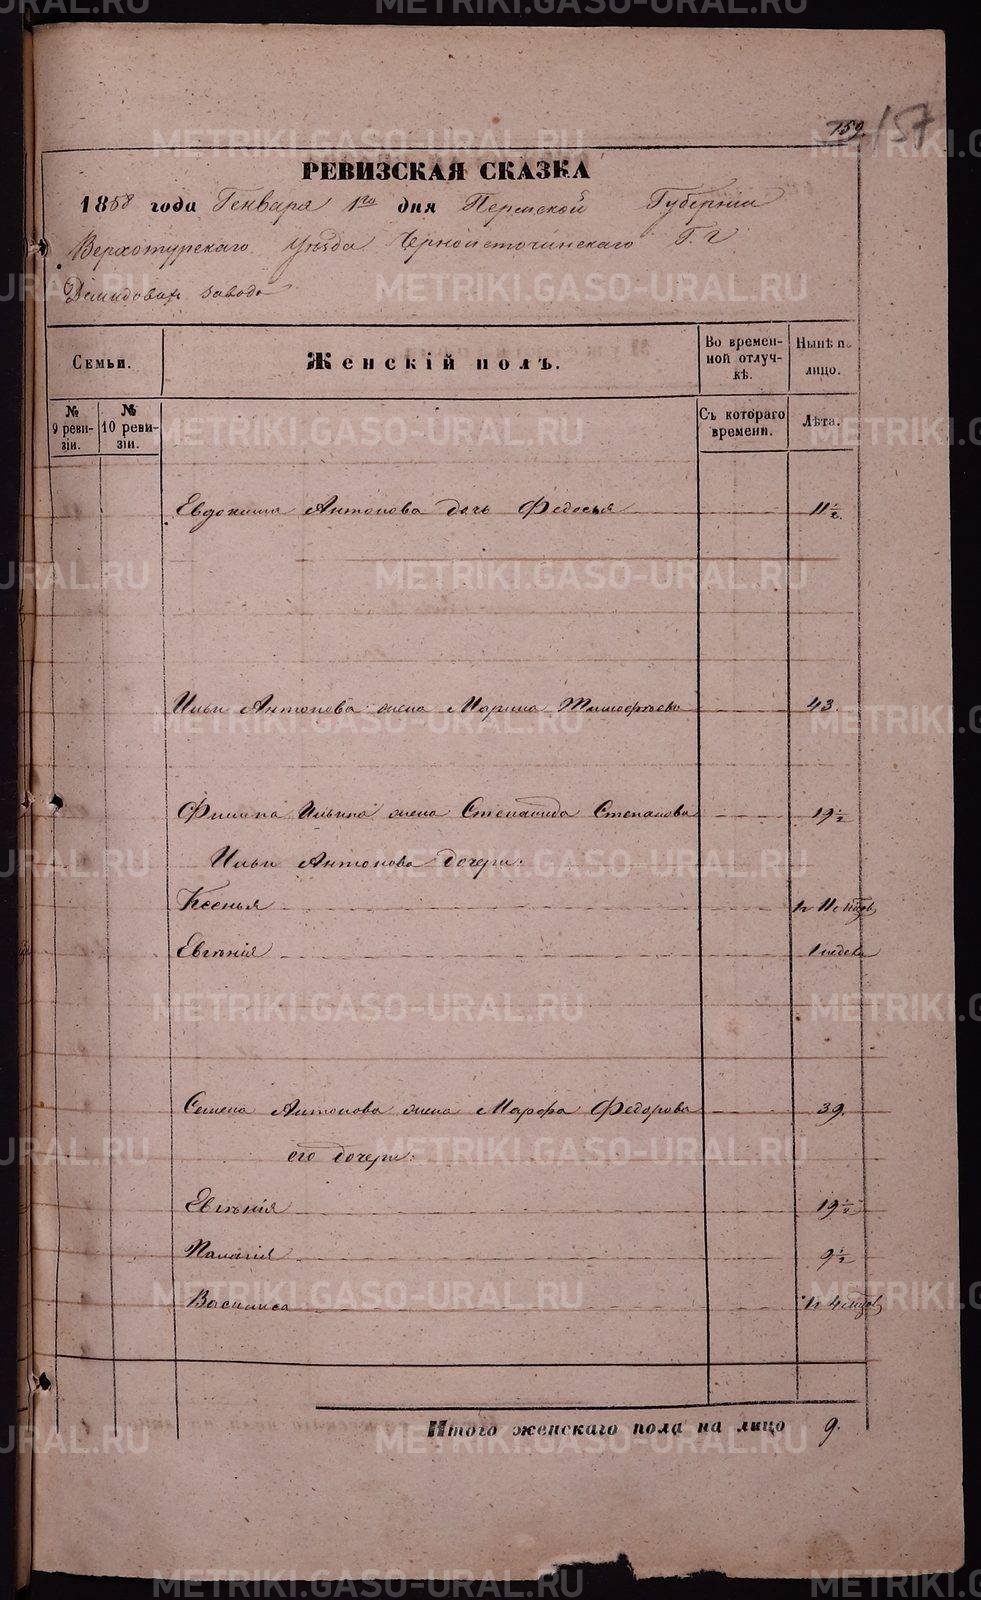 159. 157
РЕВИЗСКАЯ СКАЗКА
1858 года Генваря 1го дня Пермской Губернии
Верхотурскаго уѣзда Черноисточинскаго Г. Г.
Демидовых завода
Семьи. Женскій полъ. Во временной отлучкѣ. Нынѣ на лицо.
№ 9 ревизіи. № 10 ревизіи. Съ котораго времени. Лѣта.
Евдокима Антонова дочь Федосья 11 ½.
Ильи Антонова жена Марина Тимофѣева 43.
Филипа Ильина жена Степанида Степанова 19 ½
Ильи Антонова дочери:
Ксенья 1 г. 11 мѣсцов
Евгѣнія 1 недели
Семена Антонова жена Марфа Федорова 39.
его дочери:
Евгѣнія 19 ½
Палагія 9 ½
Василиса 1 г. 4 мѣсцов
Итого женскаго пола на лицо 9.
METRIKI.GASO-URAL.RU